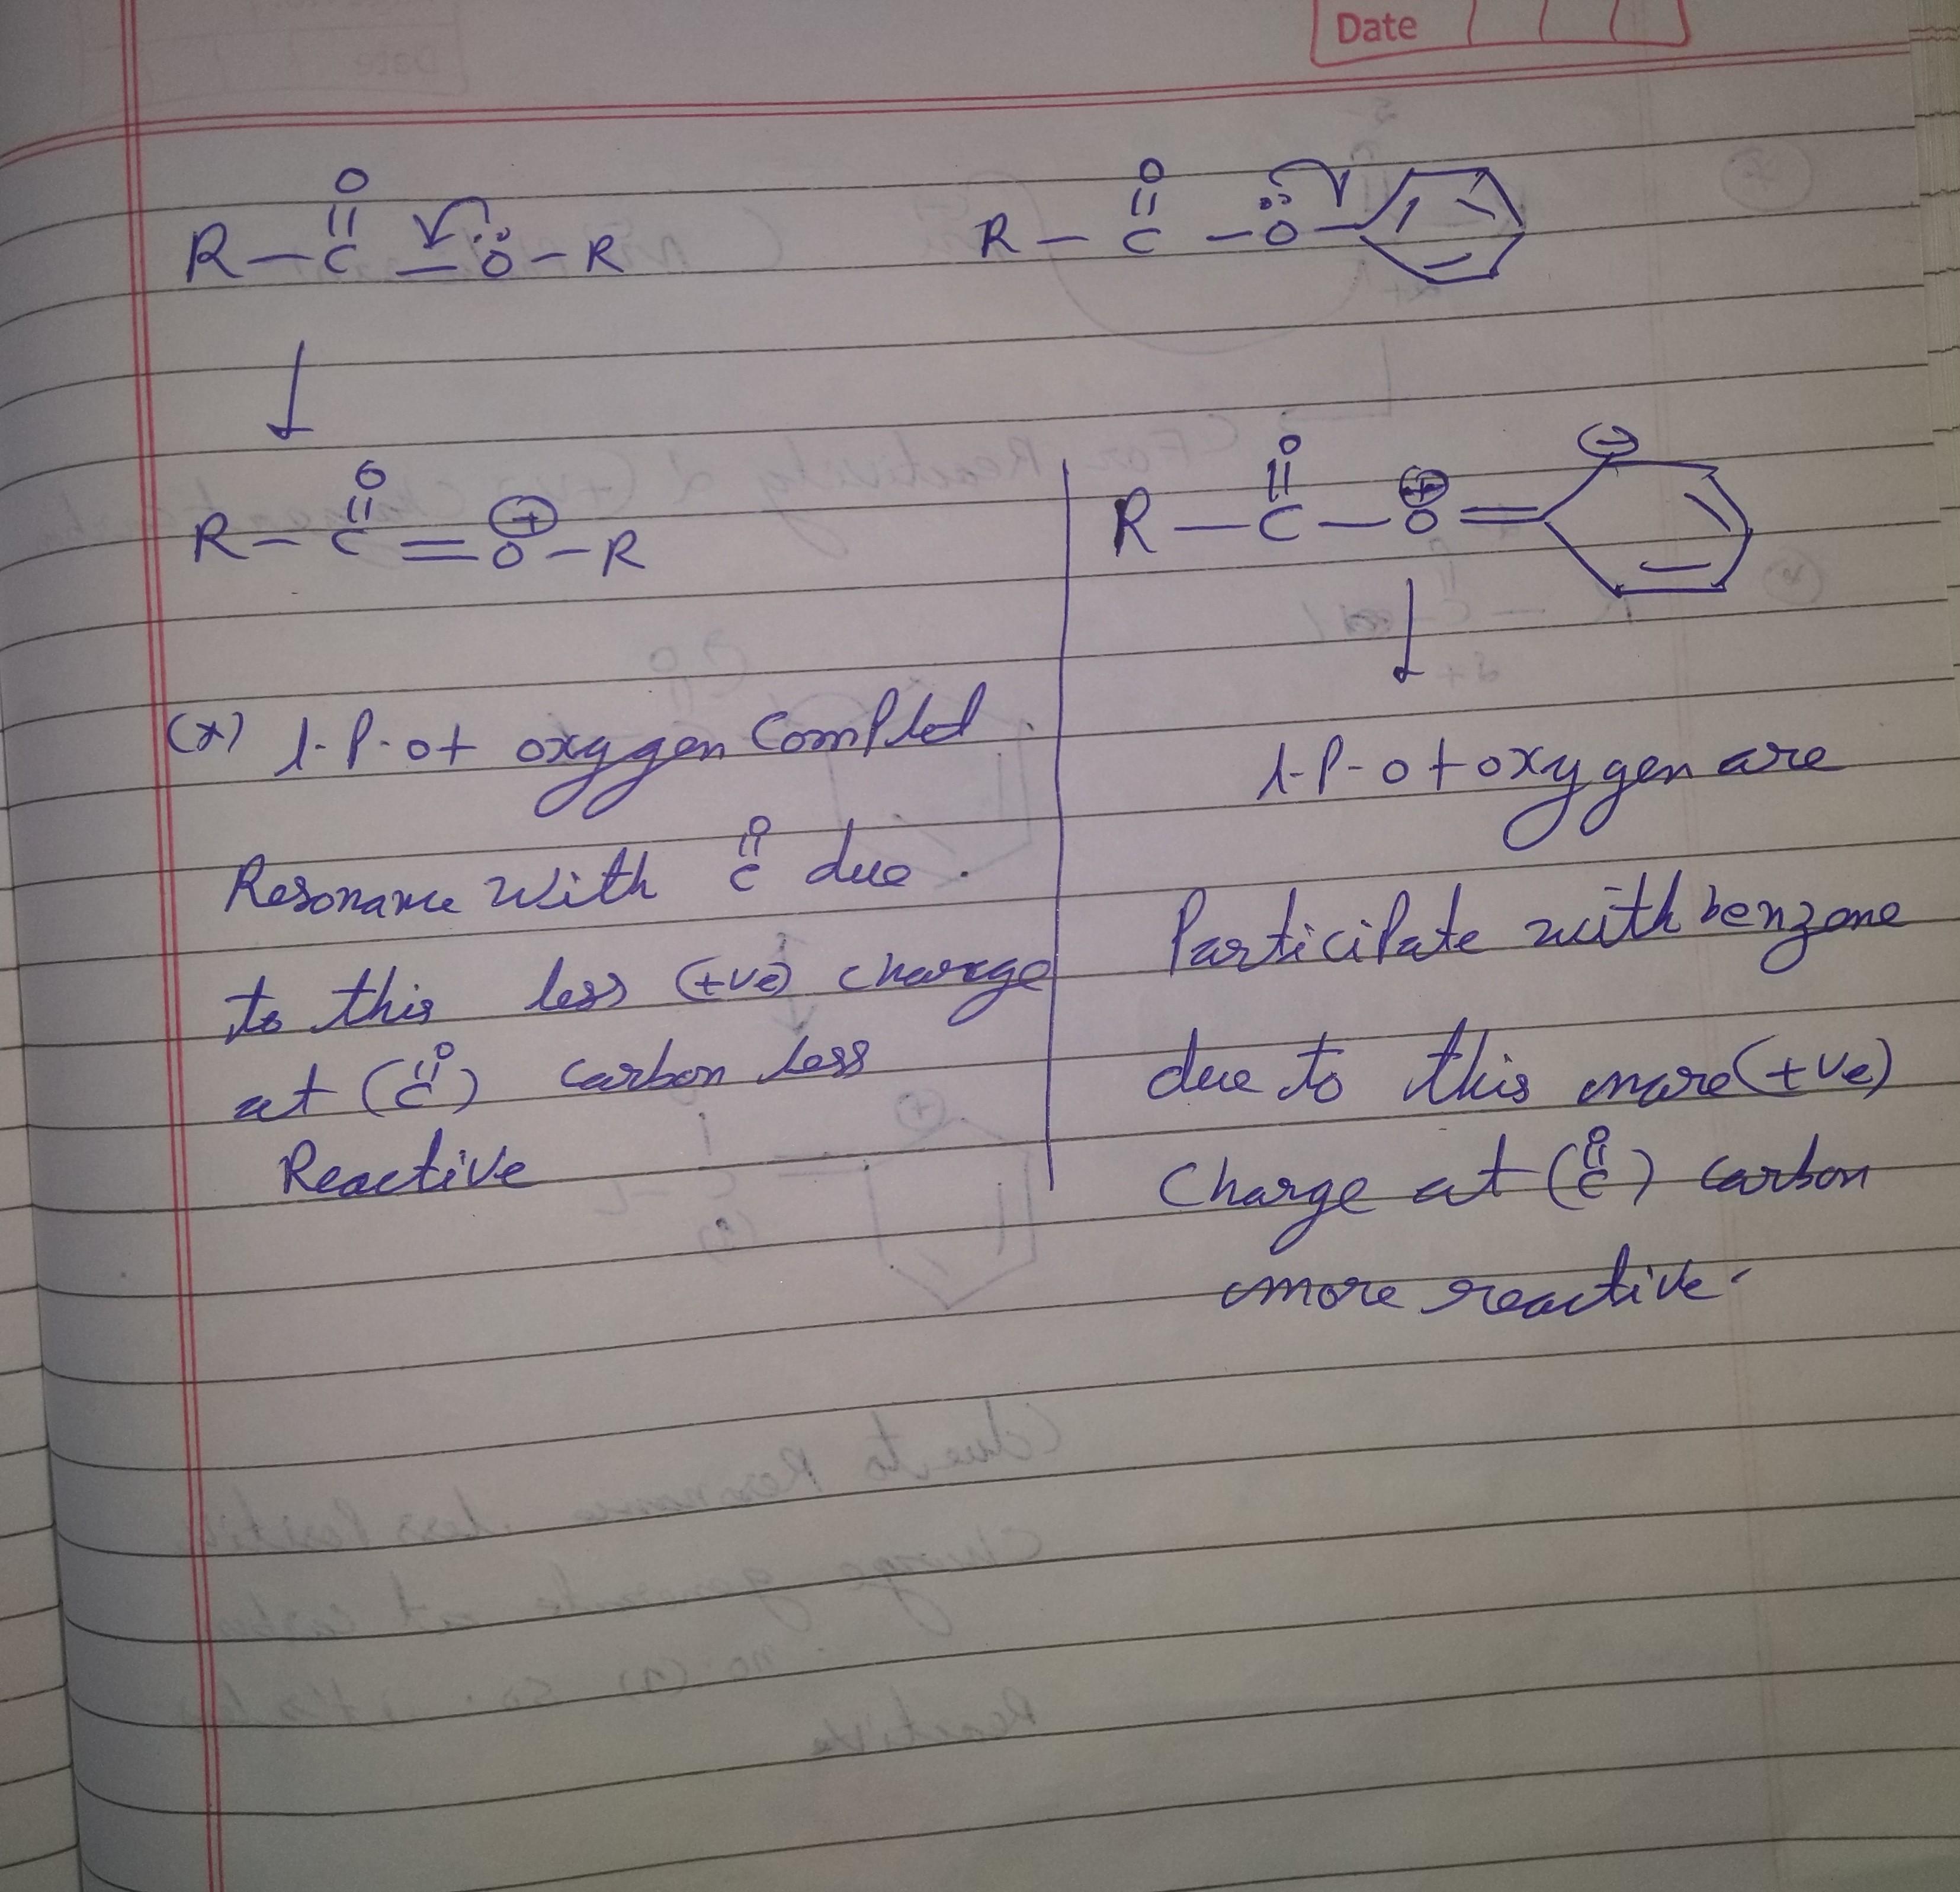 Date
O
R-C-Ö-R
O
R-C-Ö-
O
R-C=O⊕-R
O
R-C-O⊕=
⊖
(*) l.P.ot oxygen Compled
Resonance with C=O due
to this less (+ve) charge
at (C=O) carbon less
Reactive
l-P-ot oxygen are
Participate with benzene
due to this more (+ve)
Charge at (C=O) carbon
more reactive.